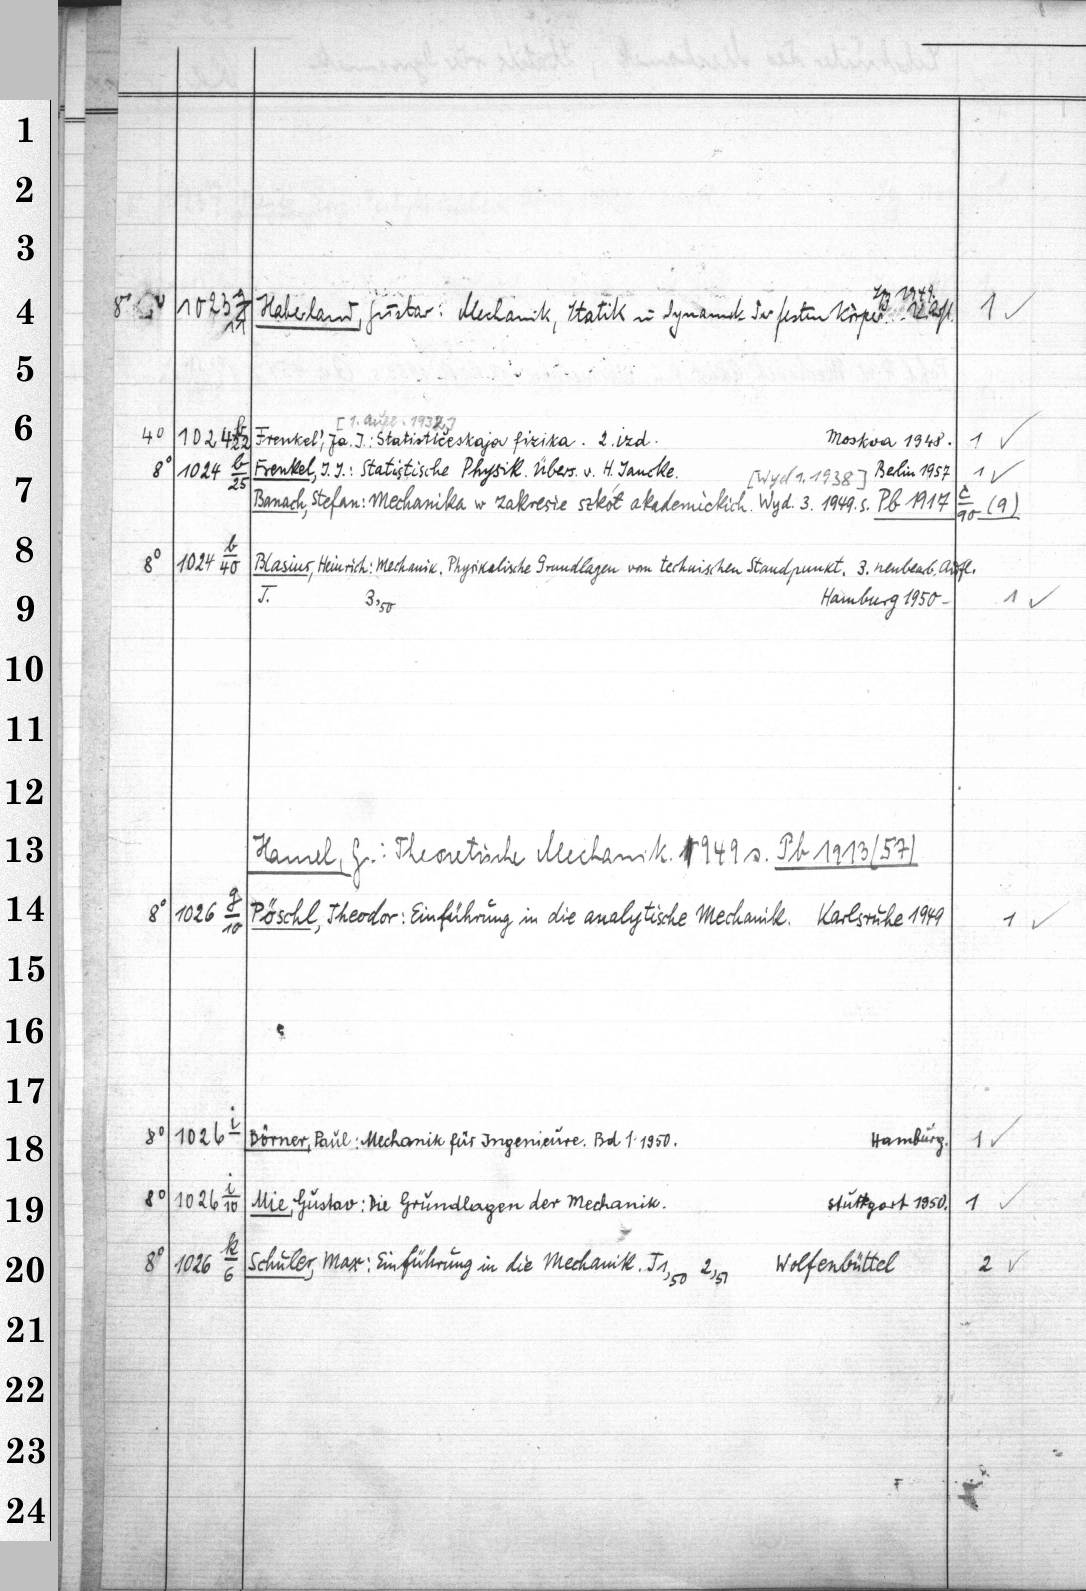 1
2
3
Lpz 1949
4 8° 1023 z/11 Haberland, Gustav: Mechanik, Statik u Dynamik der festen Körper. 1 ✓
5
[1. Aufl. 1932]
6 4° 1024 b/22 Frenkel', Ja. I.: Statističeskaja fizika. 2. izd. Moskva 1948. 1 ✓
8° 1024 b/25 Frenkel, J. J.: Statistische Physik. Übers. v. H. Jancke. Berlin 1957 1 ✓
[Wyd 1. 1938]
7 Banach, Stefan: Mechanika w zakresie szkół akademickich. Wyd. 3. 1949. s. Pb 1917 č/90 (9)
8 8° 1024 b/40 Blasius, Heinrich: Mechanik. Physikalische Grundlagen vom technischen Standpunkt. 3. neubearb. Aufl.
9 T. 3,50 Hamburg 1950- 1 ✓
10
11
12
13 Hamel, G.: Theoretische Mechanik. 1949 s. Pb 1913 (57)
14 8° 1026 g/10 Pöschl, Theodor: Einführung in die analytische Mechanik. Karlsruhe 1949 1 ✓
15
16
17
18 8° 1026 i Börner, Paul: Mechanik für Ingenieure. Bd 1. 1950. Hamburg. 1 ✓
19 8° 1026 i/10 Mie, Gustav: Die Grundlagen der Mechanik. Stuttgart 1950. 1 ✓
20 8° 1026 k/6 Schuler, Max: Einführung in die Mechanik. T 1,50 2,51 Wolfenbüttel 2 ✓
21
22
23
24